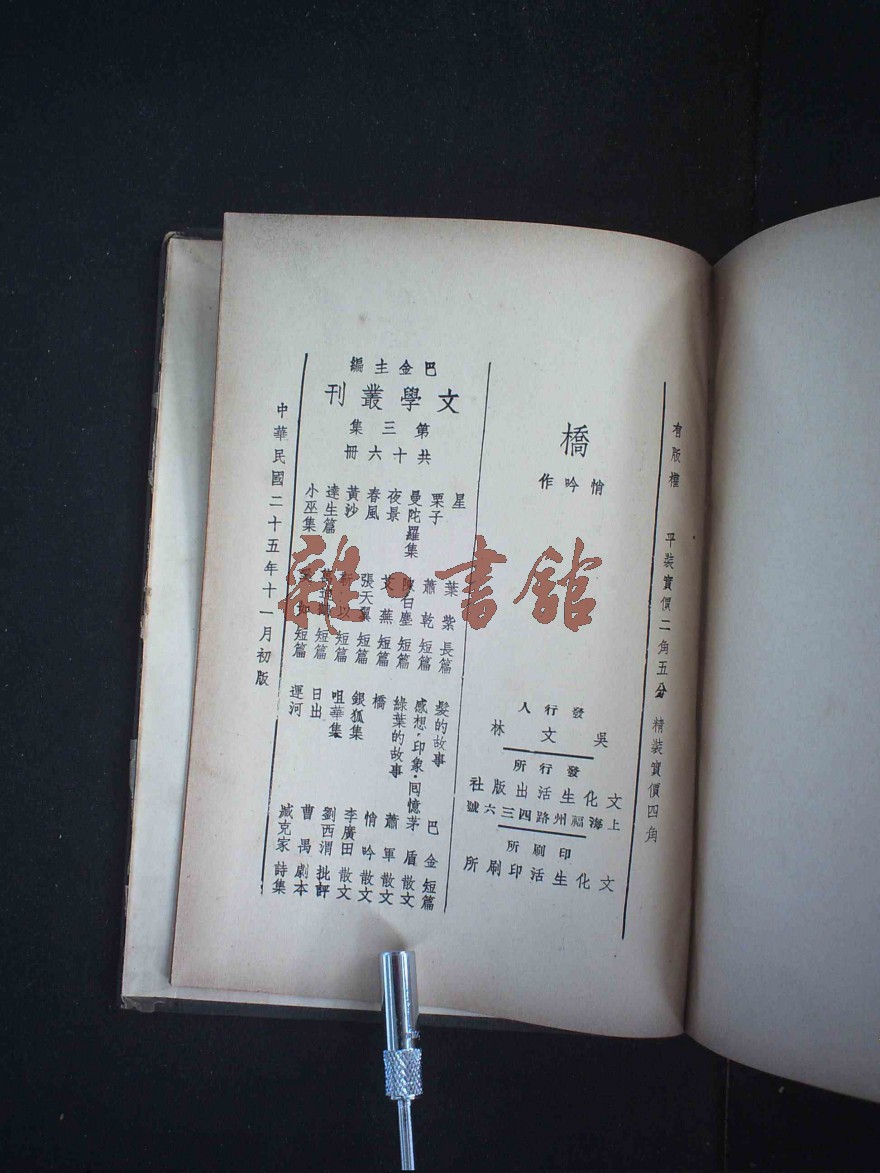 有版權 平裝實價二角五分 精裝實價四角
橋
悄吟作
發行人
吳文林
發行所
文化生活出版社
上海福州路四三六號
印刷所
文化生活印刷所
巴金主編
文學叢刊
第三集
共十六冊
星 葉紫 長篇
栗子 蕭乾 短篇
曼陀羅集 陳白塵 短篇
夜景 艾蕪 短篇
春風 張天翼 短篇
黃沙 靳以 短篇
達生篇 短篇
小巫集 短篇
髮的故事 巴金 短篇
感想·印象·囘憶 茅盾 散文
綠葉的故事 蕭軍 散文
橋 悄吟 散文
銀狐集 李廣田 散文
咀華集 劉西渭 批評
日出 曹禺 劇本
運河 臧克家 詩集
中華民國二十五年十一月初版
雜·書館